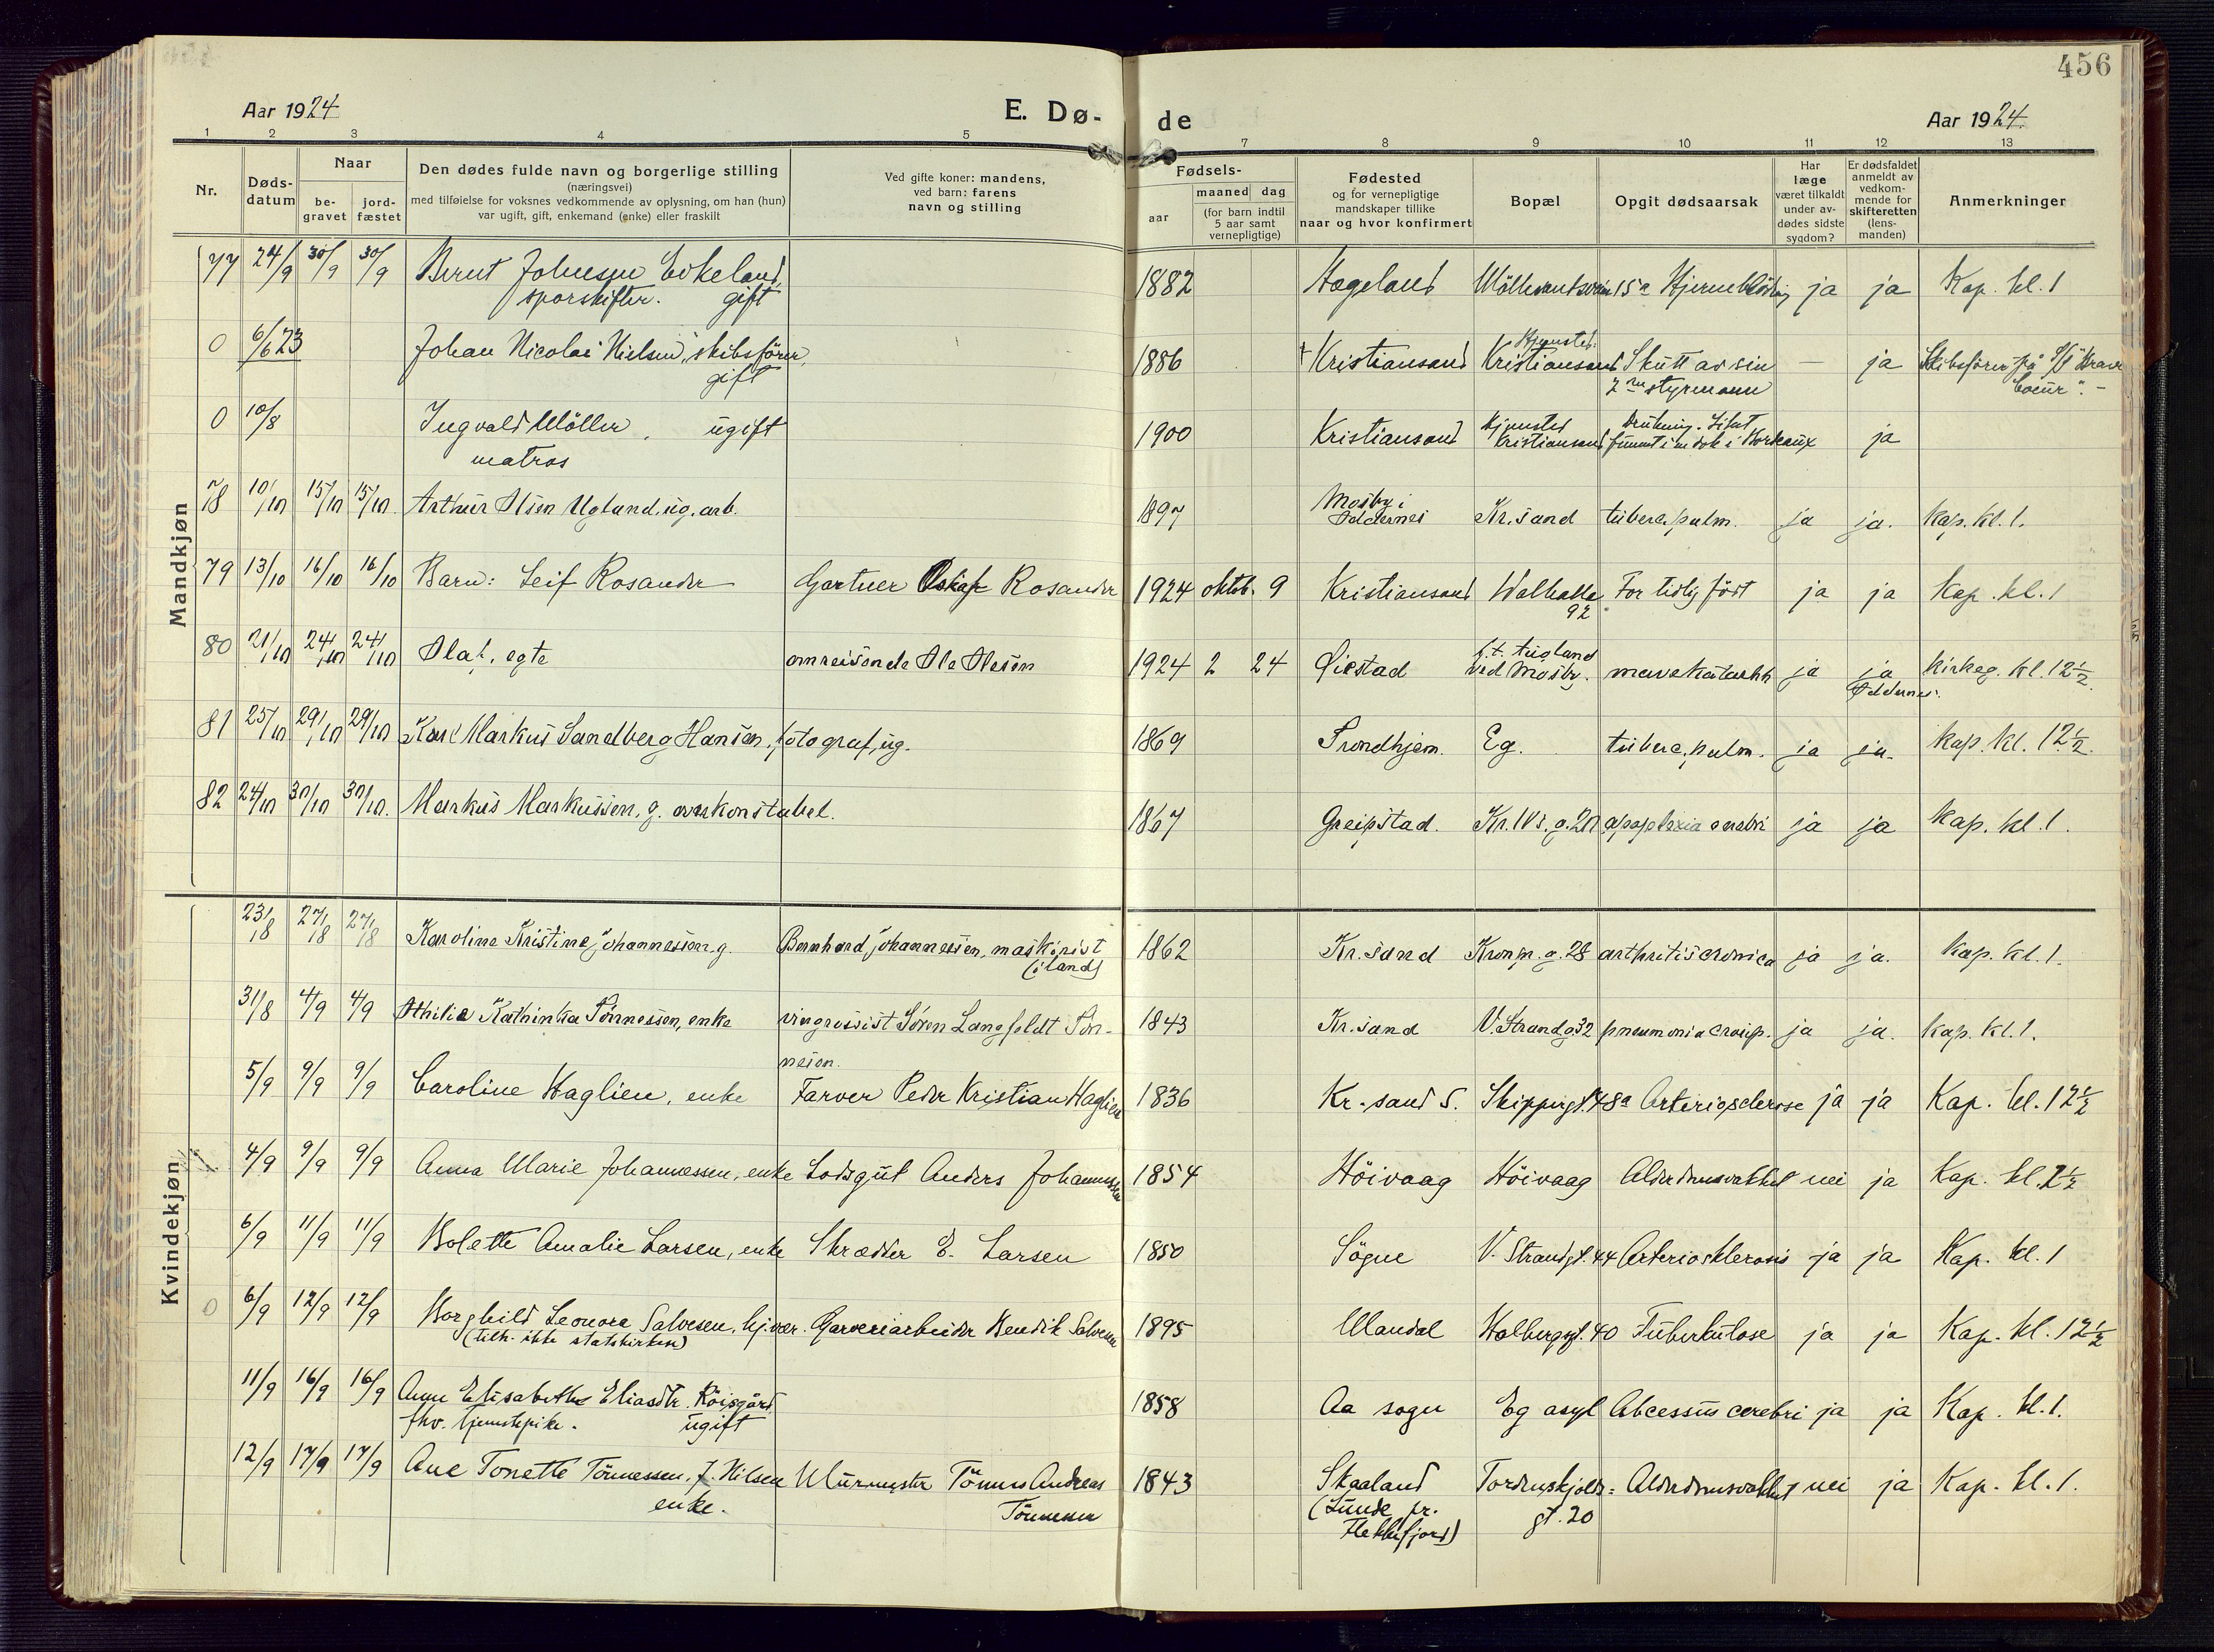 456
Aar 1924
E. Dø-
de
Aar 1924.
1 2 3 4 5 7 8 9 10 11 12 13
Nr.
Døds-
datum
Naar
be-
gravet
jord-
fæstet
Den dødes fulde navn og borgerlige stilling
(næringsvei)
med tilføielse for voksnes vedkommende av oplysning, om han (hun)
var ugift, gift, enkemand (enke) eller fraskilt
Ved gifte koner: mandens,
ved barn: farens
navn og stilling
Fødsels-
aar
maaned dag
(for barn indtil
5 aar samt
vernepligtige)
Fødested
og for vernepligtige
mandskaper tillike
naar og hvor konfirmert
Bopæl
Opgit dødsaarsak
Har
læge
været tilkaldt
under av-
dødes sidste
sygdom?
Er dødsfaldet
anmeldt av
vedkom-
mende for
skifteretten
(lens-
manden)
Anmerkninger
Mandkjøn
77 24/9 30/9 30/9 Bernt Johnsen Eikeland, 1882 Hageland 15a ja ja Kap. kl. 1
sporskifter. gift
0 6/6 23 Johan Nicolai Nielsen, skibsfører, 1886 Kristiansand Hjemsted: Kristiansand Skutt av sin — ja Skibsfører på S/S
gift 2nen styrmann
0 10/8 Ingvald Möller, ugift 1900 Kristiansand Hjemsted Kristiansand Drukning. Liket funnet i en dok i Bordeaux ja
matros
78 10/10 15/10 15/10. Arthur Olsen Ugland, ug. arb. 1897 Mosby i Oddernes Kr.sand tuberc. pulm. ja ja. Kap. kl. 1.
79 13/10 16/10 16/10 Barn: Leif Rosander Gartner Oskar Rosander 1924 oktob. 9 Kristiansand Walhalla 92 For tidlig født ja ja Kap. kl. 1
80 21/10 24/10 24/10 Olaf, egte omreisende Ole Olesen 1924 2 24 Øiestad f.t. Augland ved Mosby. mavekatarrh ja ja Oddernes. Kirkeg. kl. 12½.
81 25/10 29/10 29/10 Karl Markus Sandberg Hansen, fotograf, ug. 1869 Trondhjem. Eg. tuberc. pulm. ja ja. Kap. kl. 12½.
82 24/10 30/10 30/10. Markus Markussen, g. overkonstabel. 1867 Greipstad. Kr. IVs. g. 20 apoplexia cerebri ja ja Kap. kl. 1.
Kvindekjøn
23/8 27/8 27/8 Karoline Kristine Johannessen, g. Bernhard Johannessen, maskinist 1862 Kr.sand Kronpr. g. 28 arthritis cronica ja ja. Kap. kl. 1.
(i land)
31/8 4/9 4/9 Othilie Kathinka Tönnessen, enke vingrossist Sören Langfeldt Tön- 1843 Kr.sand V. Strandg 32 pneumonia croup. ja ja. Kap. kl. 1.
nesen.
5/9 9/9 9/9 Caroline Haglien, enke Farver Peder Kristian Haglien 1836 Kr.sand S. Skippergt. 48a Arteriosclerose ja ja Kap. kl. 12½
4/9 9/9 9/9 Anna Marie Johannessen, enke Lodsgut Anders Johannessen 1854 Höivaag Höivaag Alderdomsvakhet nei ja Kap. kl. 2½
6/9 11/9 11/9 Bolette Amalie Larsen, enke Skrædder E. Larsen 1850 Sögne V. Strandgt. 44 Arteriosklerosis ja ja Kap. kl. 1
0 6/9 12/9 12/9 Borghild Leonora Salvesen, hj.vær. Garveriarbeider Bendik Salvesen 1895 Mandal Holbergsgt. 40 Tuberkulose ja ja Kap. kl. 12½
(tilh. ikke statskirken)
11/9 16/9 16/9 Anne Elisabeth Eliasdtr. Röisgård 1858 Aa sogn Eg asyl Abcessus cerebri ja ja Kap. kl. 1.
fhv. tjenestepike. ugift
12/9 17/9 17/9 Ane Tonette Tönnessen, f. Nilsen Murmester Tönnes Andreas 1843 Skaaland Tordenskjolds- Alderdomsvakhet nei ja Kap. kl. 1.
enke. Tönnessen (Lunde pr. gt. 20
Flekkefjord)